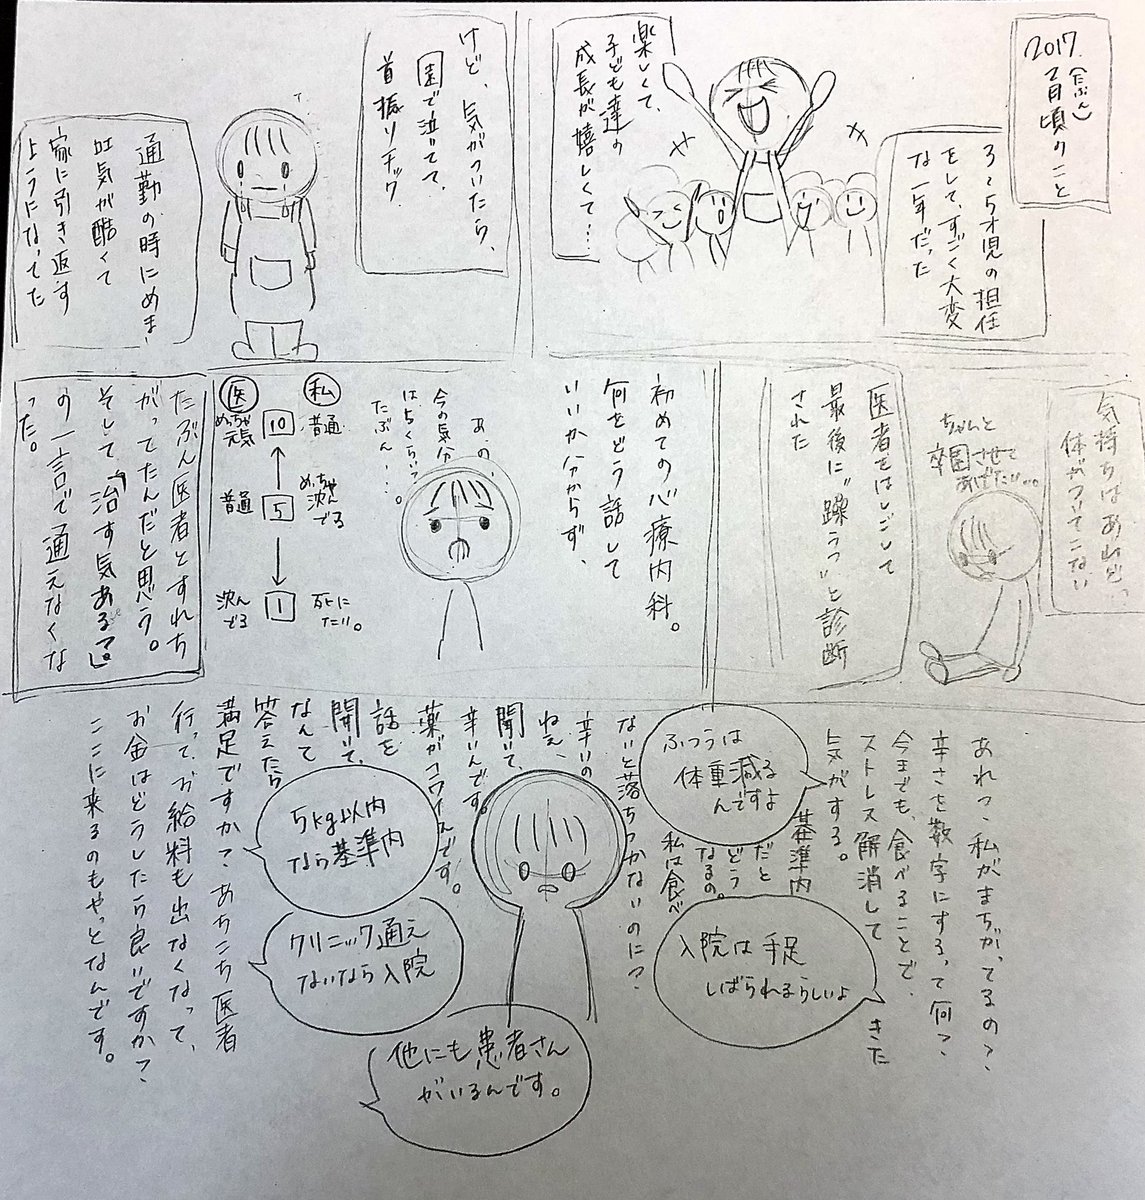 2017.(たぶん)
2月頃のこと
3〜5才児の担任
をして、すごく大変
な一年だった
楽しくて、
子ども達の
成長が嬉しくて…
けど、気がついたら、
園で泣いてて、
首振りチック
通勤の時にめまい
吐気が酷くて
家に引き返す
ようになってた
気持ちはあれど、
体がついてこない
ちゃんと
卒園させて
あげたい…。
医者をはしごして
最後に"躁うつ"と診断
された
初めての心療内科。
何をどう話して
いいか分からず、
あ、の、
今の気分
は5くらいっ
たぶん…。
私
普通
めっちゃ
沈ん
でる
死に
たい。
10
5
1
医
めっちゃ
元気
普通
沈ん
でる
たぶん医者とすれち
がってたんだと思う。
そして「治す気ある?」
の一言で通えなくな
った。
あれっ、私がまちがってるの?
辛さを数字にするって何?
今までも、食べることで、
ストレス解消して きた
気がする。
ふつうは
体重減る
んですよ
基準内
だと
どう
なるの。
私は食べ
ないと落ちつかないのに?
入院は手足
しばられるらしいよ
辛いの
ねぇ、
聞いて、
辛いんです。
薬がコワイんです。
話を
聞いて、
なんて
答えたら
満足ですか?あちこち医者
行って、お給料も出なくなって、
お金はどうしたら良いですか?
ここに来るのもやっとなんです。
5kg以内
なら基準内
クリニック通え
ないなら入院
他にも患者さん
がいるんです。